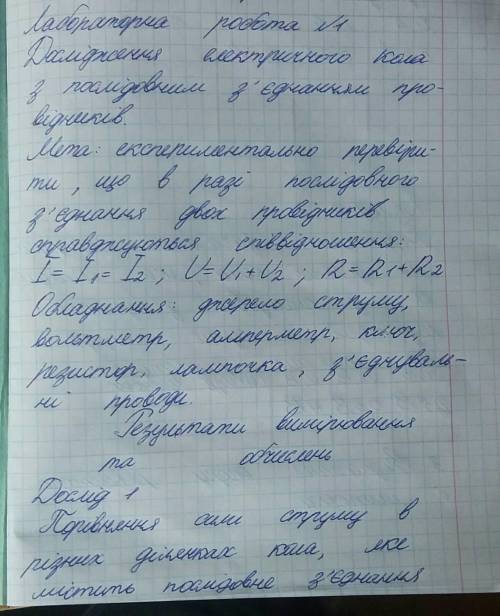 Лабораторна робота №1
Дослідження електричного кола
з послідовним з'єднанням про-
відників.
Мета: експериментально перевіри-
ти, що в разі послідовного
з'єднання двох провідників
справджуються співвідношення:
I = I1 = I2 ; U = U1 + U2 ; R = R1 + R2
Обладнання: джерело струму,
вольтметр, амперметр, ключ,
резистор, лампочка, з'єднуваль-
ні проводи.
Результати вимірювання
та обчислень
Дослід 1
Порівняння сили струму в
різних ділянках кола, яке
містить послідовне з'єднання